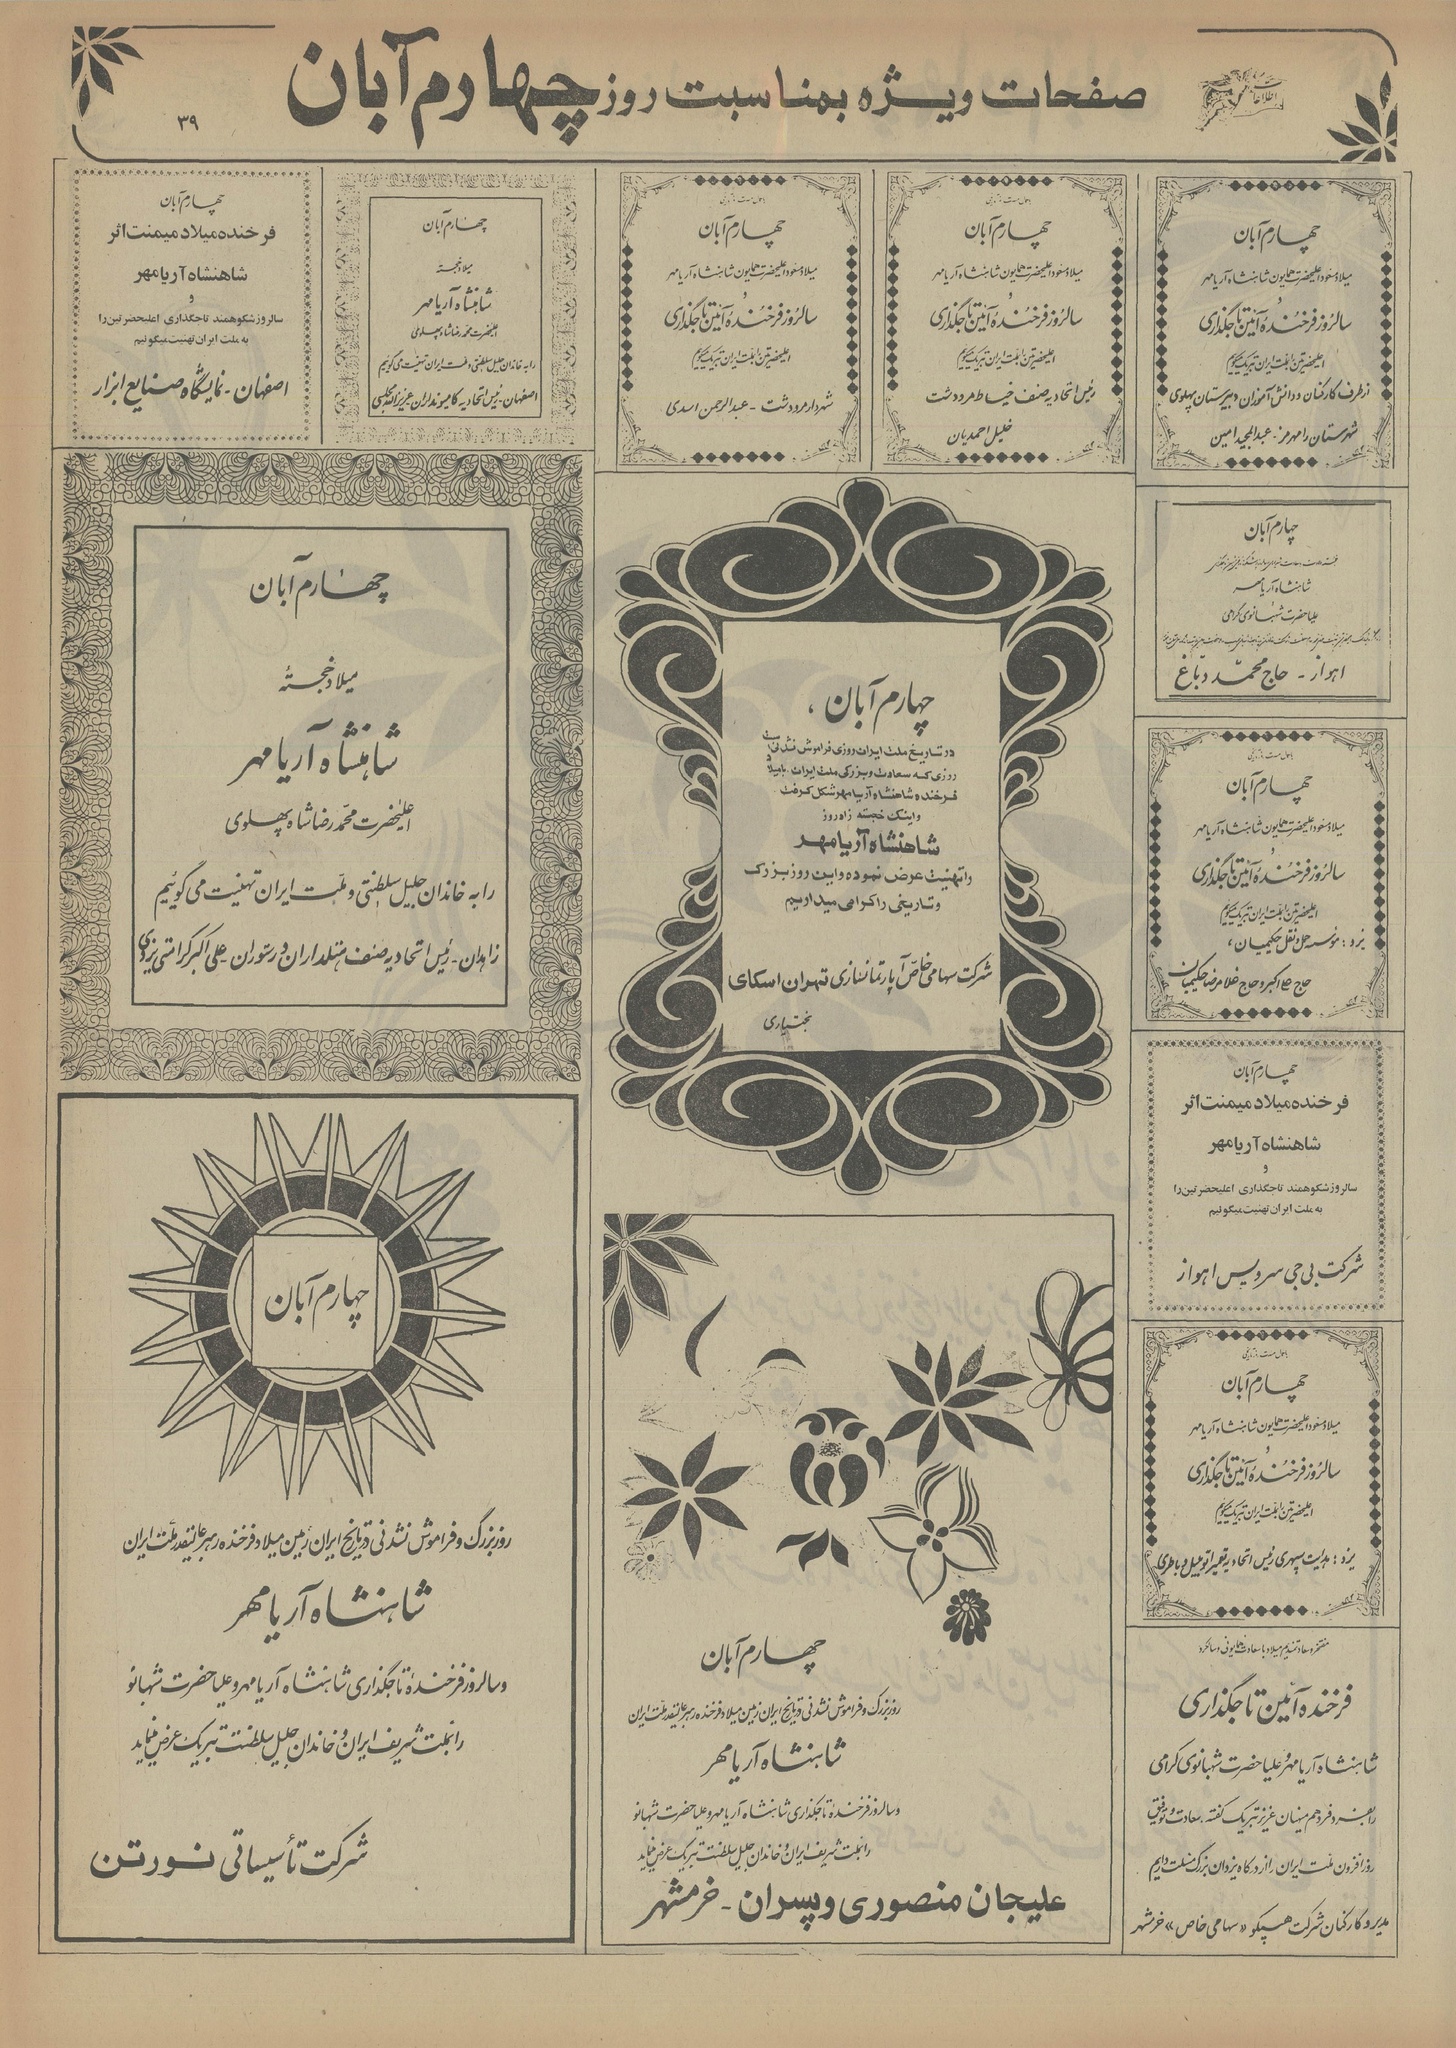 صفحات ویژه بمناسبت روز چهارم آبان
اطلاعات
۳۹
چهارم آبان
میلاد مسعود اعلیحضرت همایون شاهنشاه آریامهر
و
سالروز فرخنده آئین تاجگذاری
اعلیحضرتین را بملت ایران تبریک میگویم
از طرف کارکنان و دانش آموزان دبیرستان پهلوی
شهرستان رامهرمز - عبدالمجید امین
چهارم آبان
میلاد مسعود اعلیحضرت همایون شاهنشاه آریامهر
و
سالروز فرخنده آئین تاجگذاری
اعلیحضرتین را بملت ایران تبریک میگویم
رئیس اتحادیه صنف خیاط مرودشت
خلیل احمدیان
چهارم آبان
میلاد مسعود اعلیحضرت همایون شاهنشاه آریامهر
و
سالروز فرخنده آئین تاجگذاری
اعلیحضرتین را بملت ایران تبریک میگویم
شهردار مرودشت - عبدالرحمن اسدی
چهارم آبان
میلاد خجسته
شاهنشاه آریامهر
اعلیحضرت محمد رضا شاه پهلوی
را به خاندان جلیل سلطنتی و ملت ایران تهنیت می گوئیم
اصفهان - رئیس اتحادیه کامیونداران عزیزالله
چهارم آبان
فرخنده میلاد میمنت اثر
شاهنشاه آریامهر
و
سالروز شکوهمند تاجگذاری اعلیحضرتین را
به ملت ایران تهنیت میگوئیم
اصفهان - نمایشگاه صنایع ابزار
چهارم آبان
شاهنشاه آریامهر
علیاحضرت شهبانوی گرامی
اهواز - حاج محمد دباغ
چهارم آبان
میلاد مسعود اعلیحضرت همایون شاهنشاه آریامهر
و
سالروز فرخنده آئین تاجگذاری
اعلیحضرتین را بملت ایران تبریک میگویم
یزد : موسسه حمل و نقل حکیمیان ،
حاج علی اکبر و حاج غلامرضا حکیمیان
چهارم آبان
فرخنده میلاد میمنت اثر
شاهنشاه آریامهر
و
سالروز شکوهمند تاجگذاری اعلیحضرتین را
به ملت ایران تهنیت میگوئیم
شرکت بی جی سرویس اهواز
چهارم آبان
میلاد مسعود اعلیحضرت همایون شاهنشاه آریامهر
و
سالروز فرخنده آئین تاجگذاری
اعلیحضرتین را بملت ایران تبریک میگویم
یزد : هدایت سپهری رئیس اتحادیه تعمیر اتومبیل و باطری
مفتخر و سعادتمندیم میلاد با سعادت همایونی و سالگرد
فرخنده آئین تاجگذاری
شاهنشاه آریامهر و علیاحضرت شهبانوی گرامی
را بفرد فرد هم میهنان عزیز تبریک گفته سعادت و توفیق
روزافزون ملت ایران را از درگاه یزدان بزرگ مسئلت داریم
مدیر و کارکنان شرکت هسپکو «سهامی خاص» خرمشهر
چهارم آبان ،
در تاریخ ملت ایران روزی فراموش نشدنی است
روزی که سعادت و بزرگی ملت ایران با میلاد
فرخنده شاهنشاه آریامهر شکل گرفت
و اینک خجسته زادروز
شاهنشاه آریامهر
را تهنیت عرض نموده و این روز بزرگ
و تاریخی را گرامی میداریم
شرکت سهامی خاص آپارتمانسازی تهران اسکای
بختیاری
چهارم آبان
میلاد خجستهٔ
شاهنشاه آریامهر
اعلیحضرت محمد رضا شاه پهلوی
را به خاندان جلیل سلطنتی و ملت ایران تهنیت می گوئیم
زاهدان - رئیس اتحادیه صنف هتلداران و رستوران - علی اکبر کرامتی یزدی
چهارم آبان
روز بزرگ و فراموش نشدنی در تاریخ ایران زمین میلاد فرخنده رهبر عالیقدر ملت ایران
شاهنشاه آریامهر
و سالروز فرخندهٔ تاجگذاری شاهنشاه آریامهر و علیاحضرت شهبانو
را بملت شریف ایران و خاندان جلیل سلطنت تبریک عرض مینماید
علیجان منصوری و پسران - خرمشهر
چهارم آبان
روز بزرگ و فراموش نشدنی در تاریخ ایران زمین میلاد فرخنده رهبر عالیقدر ملت ایران
شاهنشاه آریامهر
و سالروز فرخندهٔ تاجگذاری شاهنشاه آریامهر و علیاحضرت شهبانو
را بملت شریف ایران و خاندان جلیل سلطنت تبریک عرض مینماید
شرکت تأسیساتی نورتن